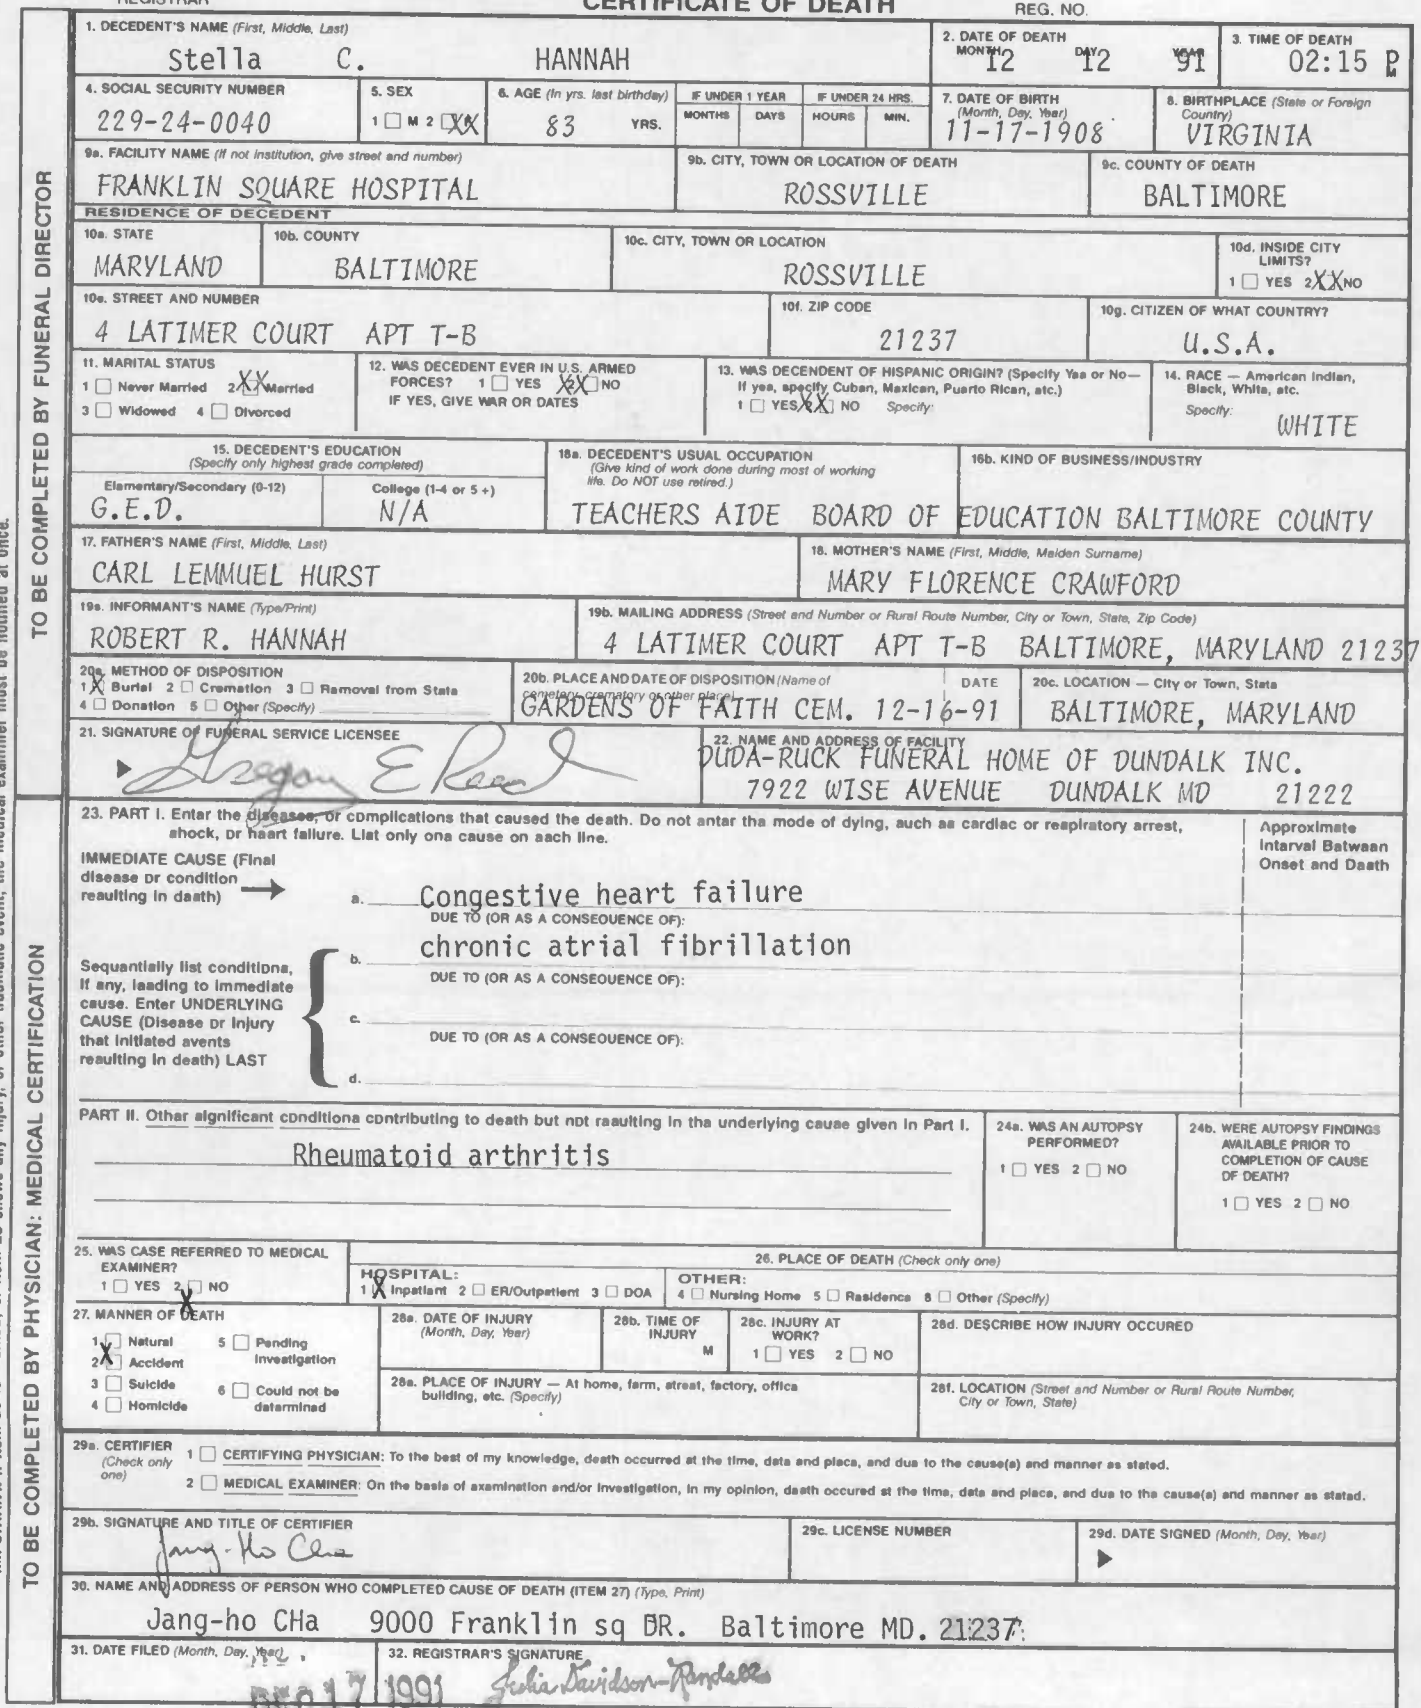 REGISTRAR CERTIFICATE OF DEATH REG. NO.
1. DECEDENT'S NAME (First, Middle, Last)
Stella C. HANNAH
2. DATE OF DEATH
MONTH DAY YEAR
12 12 91
3. TIME OF DEATH
02:15 P M
4. SOCIAL SECURITY NUMBER
229-24-0040
5. SEX
1 M 2 XX
6. AGE (In yrs. last birthday)
83 YRS.
IF UNDER 1 YEAR
MONTHS DAYS
IF UNDER 24 HRS.
HOURS MIN.
7. DATE OF BIRTH
(Month, Day, Year)
11-17-1908
8. BIRTHPLACE (State or Foreign
Country)
VIRGINIA
9a. FACILITY NAME (If not institution, give street and number)
FRANKLIN SQUARE HOSPITAL
9b. CITY, TOWN OR LOCATION OF DEATH
ROSSVILLE
9c. COUNTY OF DEATH
BALTIMORE
RESIDENCE OF DECEDENT
10a. STATE
MARYLAND
10b. COUNTY
BALTIMORE
10c. CITY, TOWN OR LOCATION
ROSSVILLE
10d. INSIDE CITY
LIMITS?
1 YES 2 XX NO
10e. STREET AND NUMBER
4 LATIMER COURT APT T-B
10f. ZIP CODE
21237
10g. CITIZEN OF WHAT COUNTRY?
U.S.A.
11. MARITAL STATUS
1 Never Married 2 XX Married
3 Widowed 4 Divorced
12. WAS DECEDENT EVER IN U.S. ARMED
FORCES? 1 YES 2 XX NO
IF YES, GIVE WAR OR DATES
13. WAS DECENDENT OF HISPANIC ORIGIN? (Specify Yes or No—
If yes, specify Cuban, Mexican, Puerto Rican, etc.)
1 YES 2 XX NO Specify:
14. RACE — American Indian,
Black, White, etc.
Specify:
WHITE
15. DECEDENT'S EDUCATION
(Specify only highest grade completed)
Elementary/Secondary (0-12)
G.E.D.
College (1-4 or 5 +)
N/A
16a. DECEDENT'S USUAL OCCUPATION
(Give kind of work done during most of working
life. Do NOT use retired.)
16b. KIND OF BUSINESS/INDUSTRY
TEACHERS AIDE BOARD OF EDUCATION BALTIMORE COUNTY
17. FATHER'S NAME (First, Middle, Last)
CARL LEMMUEL HURST
18. MOTHER'S NAME (First, Middle, Maiden Surname)
MARY FLORENCE CRAWFORD
19a. INFORMANT'S NAME (Type/Print)
ROBERT R. HANNAH
19b. MAILING ADDRESS (Street and Number or Rural Route Number, City or Town, State, Zip Code)
4 LATIMER COURT APT T-B BALTIMORE, MARYLAND 21237
20a. METHOD OF DISPOSITION
1 X Burial 2 Cremation 3 Removal from State
4 Donation 5 Other (Specify)
20b. PLACE AND DATE OF DISPOSITION (Name of
cemetery, crematory or other place)
DATE
GARDENS OF FAITH CEM. 12-16-91
20c. LOCATION — City or Town, State
BALTIMORE, MARYLAND
21. SIGNATURE OF FUNERAL SERVICE LICENSEE
Gregory E Reed
22. NAME AND ADDRESS OF FACILITY
DUDA-RUCK FUNERAL HOME OF DUNDALK INC.
7922 WISE AVENUE DUNDALK MD 21222
TO BE COMPLETED BY FUNERAL DIRECTOR
23. PART I. Enter the diseases, or complications that caused the death. Do not enter the mode of dying, such as cardiac or respiratory arrest,
shock, or heart failure. List only one cause on each line.
Approximate
Interval Between
Onset and Death
IMMEDIATE CAUSE (Final
disease or condition
resulting in death)
a. Congestive heart failure
DUE TO (OR AS A CONSEQUENCE OF):
b. chronic atrial fibrillation
DUE TO (OR AS A CONSEQUENCE OF):
c.
DUE TO (OR AS A CONSEQUENCE OF):
d.
Sequentially list conditions,
if any, leading to immediate
cause. Enter UNDERLYING
CAUSE (Disease or injury
that initiated events
resulting in death) LAST
PART II. Other significant conditions contributing to death but not resulting in the underlying cause given in Part I.
Rheumatoid arthritis
24a. WAS AN AUTOPSY
PERFORMED?
1 YES 2 NO
24b. WERE AUTOPSY FINDINGS
AVAILABLE PRIOR TO
COMPLETION OF CAUSE
OF DEATH?
1 YES 2 NO
25. WAS CASE REFERRED TO MEDICAL
EXAMINER?
1 YES 2 X NO
26. PLACE OF DEATH (Check only one)
HOSPITAL:
1 X Inpatient 2 ER/Outpatient 3 DOA
OTHER:
4 Nursing Home 5 Residence 6 Other (Specify)
27. MANNER OF DEATH
1 X Natural 5 Pending
2 Accident Investigation
3 Suicide 6 Could not be
4 Homicide determined
28a. DATE OF INJURY
(Month, Day, Year)
28b. TIME OF
INJURY
M
28c. INJURY AT
WORK?
1 YES 2 NO
28d. DESCRIBE HOW INJURY OCCURED
28e. PLACE OF INJURY — At home, farm, street, factory, office
building, etc. (Specify)
28f. LOCATION (Street and Number or Rural Route Number,
City or Town, State)
29a. CERTIFIER
(Check only
one)
1 CERTIFYING PHYSICIAN: To the best of my knowledge, death occurred at the time, date and place, and due to the cause(s) and manner as stated.
2 MEDICAL EXAMINER: On the basis of examination and/or investigation, in my opinion, death occured at the time, date and place, and due to the cause(s) and manner as stated.
29b. SIGNATURE AND TITLE OF CERTIFIER
Jang-Ho Cha
29c. LICENSE NUMBER
29d. DATE SIGNED (Month, Day, Year)
30. NAME AND ADDRESS OF PERSON WHO COMPLETED CAUSE OF DEATH (ITEM 27) (Type, Print)
Jang-ho CHa 9000 Franklin sq DR. Baltimore MD. 21237
31. DATE FILED (Month, Day, Year)
DEC 17 1991
32. REGISTRAR'S SIGNATURE
Julia Davidson-Randall
TO BE COMPLETED BY PHYSICIAN: MEDICAL CERTIFICATION